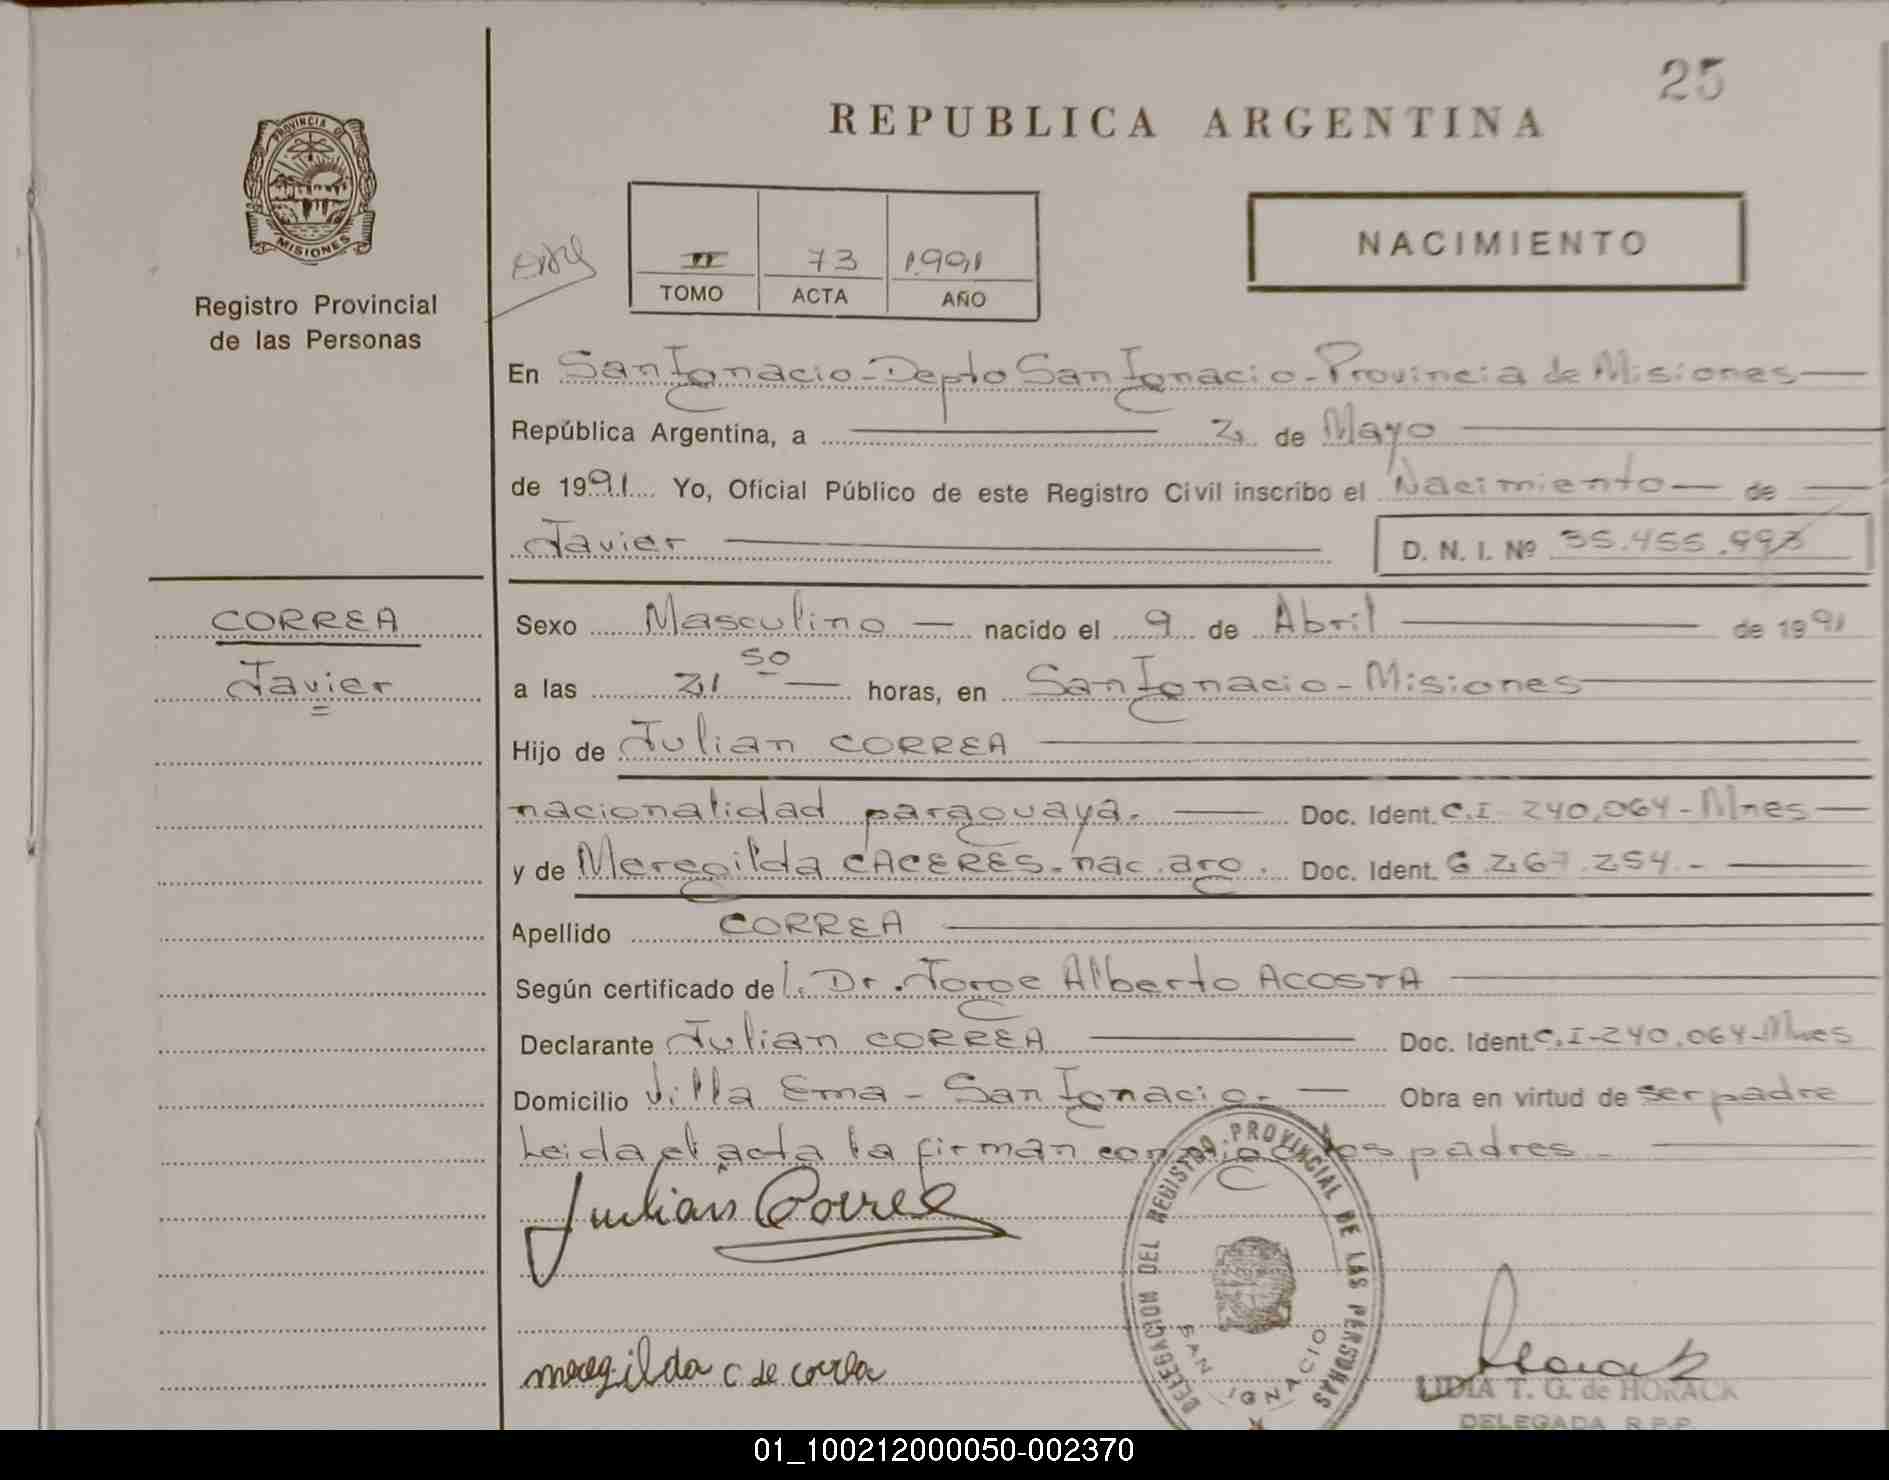 25
REPUBLICA ARGENTINA
PROVINCIA DE
MISIONES
Registro Provincial
de las Personas
II 73 1991
TOMO ACTA AÑO
NACIMIENTO
En San Ignacio - Depto San Ignacio - Provincia de Misiones
República Argentina, a 2 de Mayo
de 1991 Yo, Oficial Público de este Registro Civil inscribo el Nacimiento de
Javier D. N. I. Nº 35.455.993
CORREA
Javier
Sexo Masculino nacido el 9 de Abril de 1991
a las 21 50 horas, en San Ignacio - Misiones
Hijo de Julian CORREA
nacionalidad paraguaya. Doc. Ident. C.I. 240.064 - Mnes
y de Meregilda CACERES. nac. arg. Doc. Ident.
Apellido CORREA
Según certificado del. Dr. Jorge Alberto ACOSTA
Declarante Julian CORREA Doc. Ident. C.I - 240.064 - Mnes
Domicilio Villa Ema - San Ignacio. Obra en virtud de ser padre
Leida el acta la firman los padres.
Julian Correa
meregilda C de correa
DELEGACION DEL REGISTRO PROVINCIAL DE LAS PERSONAS
SAN IGNACIO
LIDIA T. G. de HORACK
DELEGADA R.P.P.
01_100212000050-002370